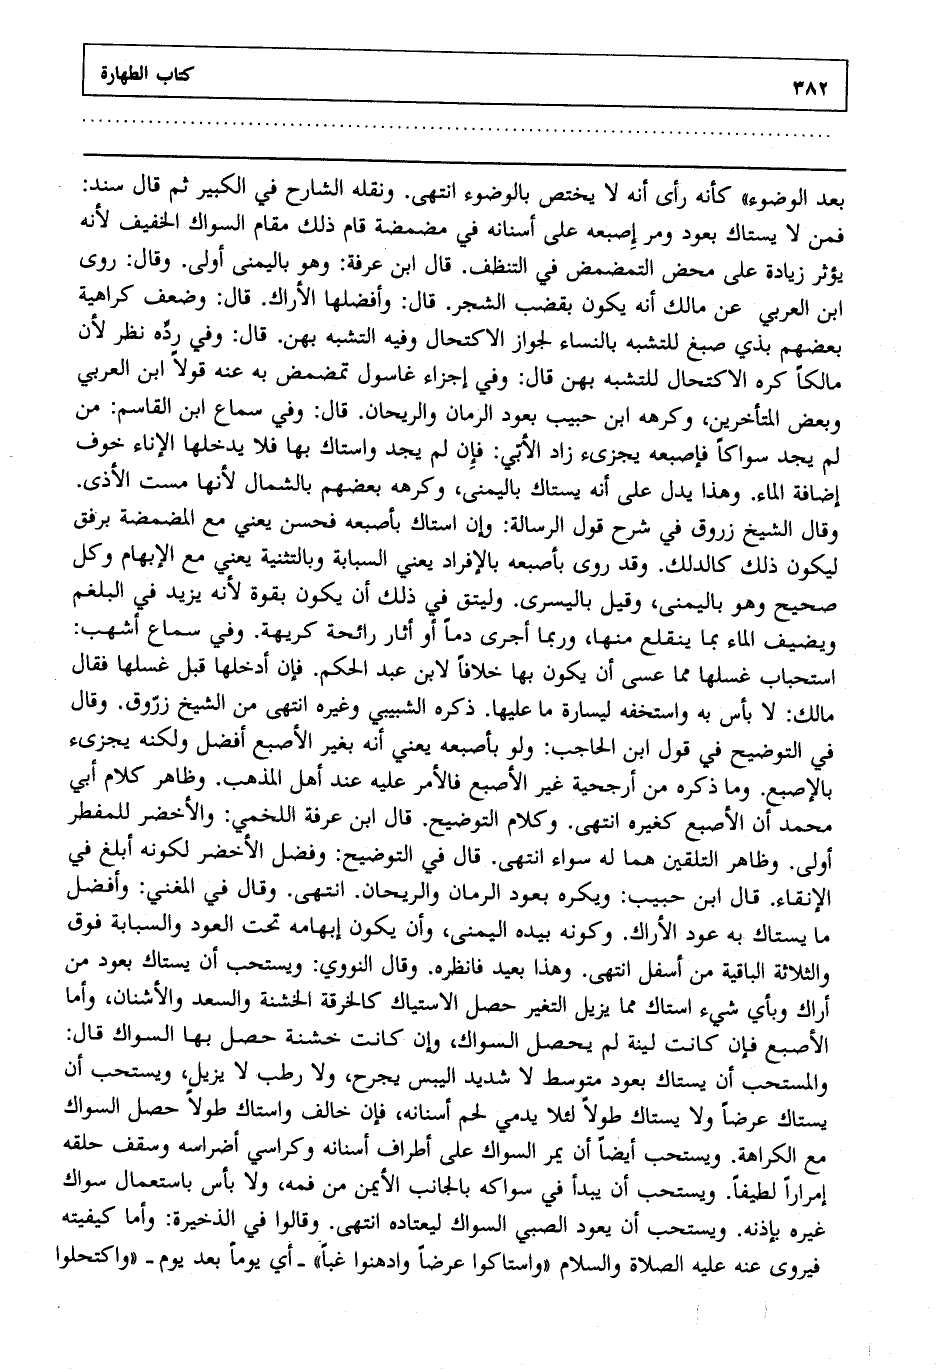 ٣٨٢
كتاب الطهارة
بعد الوضوء» كأنه رأى أنه لا يختص بالوضوء انتهى. ونقله الشارح في الكبير ثم قال سند:
فمن لا يستاك بعود ومر إصبعه على أسنانه في مضمضة قام ذلك مقام السواك الخفيف لأنه
يؤثر زيادة على محض التمضمض في التنظف. قال ابن عرفة: وهو باليمنى أولى. وقال: روى
ابن العربي عن مالك أنه يكون بقضب الشجر. قال: وأفضلها الأراك. قال: وضعف كراهية
بعضهم بذي صبغ للتشبه بالنساء لجواز الاكتحال وفيه التشبه بهن. قال: وفي ردّه نظر لأن
مالكاً كره الاكتحال للتشبه بهن قال: وفي إجزاء غاسول تمضمض به عنه قولاً ابن العربي
وبعض المتأخرين، وكرهه ابن حبيب بعود الرمان والريحان. قال: وفي سماع ابن القاسم: من
لم يجد سواكاً فإصبعه يجزىء زاد الأبّي: فإن لم يجد واستاك بها فلا يدخلها الإناء خوف
إضافة الماء. وهذا يدل على أنه يستاك باليمنى، وكرهه بعضهم بالشمال لأنها مست الأذى.
وقال الشيخ زروق في شرح قول الرسالة: وإن استاك بأصبعه فحسن يعني مع المضمضة برفق
ليكون ذلك كالدلك. وقد روى بأصبعه بالإفراد يعني السبابة وبالتثنية يعني مع الإبهام وكل
صحيح وهو باليمنى، وقيل باليسرى. وليتق في ذلك أن يكون بقوة لأنه يزيد في البلغم
ويضيف الماء بما ينقلع منها، وربما أجرى دماً أو أثار رائحة كريهة. وفي سماع أشهب:
استحباب غسلها مما عسى أن يكون بها خلافاً لابن عبد الحكم. فإن أدخلها قبل غسلها فقال
مالك: لا بأس به واستخفه ليسارة ما عليها. ذكره الشبيبي وغيره انتهى من الشيخ زرّوق. وقال
في التوضيح في قول ابن الحاجب: ولو بأصبعه يعني أنه بغير الأصبع أفضل ولكنه يجزىء
بالإصبع. وما ذكره من أرجحية غير الأصبع فالأمر عليه عند أهل المذهب. وظاهر كلام أبي
محمد أن الأصبع كغيره انتهى. وكلام التوضيح. قال ابن عرفة اللخمي: والأخضر للمفطر
أولى. وظاهر التلقين هما له سواء انتهى. قال في التوضيح: وفضل الأخضر لكونه أبلغ في
الإنقاء. قال ابن حبيب: ويكره بعود الرمان والريحان. انتهى. وقال في المغني: وأفضل
ما يستاك به عود الأراك. وكونه بيده اليمنى، وأن يكون إبهامه تحت العود والسبابة فوق
والثلاثة الباقية من أسفل انتهى. وهذا بعيد فانظره. وقال النووي: ويستحب أن يستاك بعود من
أراك وبأي شيء استاك مما يزيل التغير حصل الاستياك كالخرقة الخشنة والسعد والأشنان، وأما
الأصبع فإن كانت لينة لم يحصل السواك، وإن كانت خشنة حصل بها السواك قال:
والمستحب أن يستاك بعود متوسط لا شديد اليبس يجرح، ولا رطب لا يزيل، ويستحب أن
يستاك عرضاً ولا يستاك طولاً لئلا يدمي لحم أسنانه، فإن خالف واستاك طولاً حصل السواك
مع الكراهة. ويستحب أيضاً أن يمر السواك على أطراف أسنانه وكراسي أضراسه وسقف حلقه
إمراراً لطيفاً. ويستحب أن يبدأ في سواكه بالجانب الأيمن من فمه، ولا بأس باستعمال سواك
غيره بإذنه. ويستحب أن يعود الصبي السواك ليعتاده انتهى. وقالوا في الذخيرة: وأما كيفيته
فيروى عنه عليه الصلاة والسلام «واستاكوا عرضاً وادهنوا غباً» ـ أي يوماً بعد يوم ـ «واكتحلوا